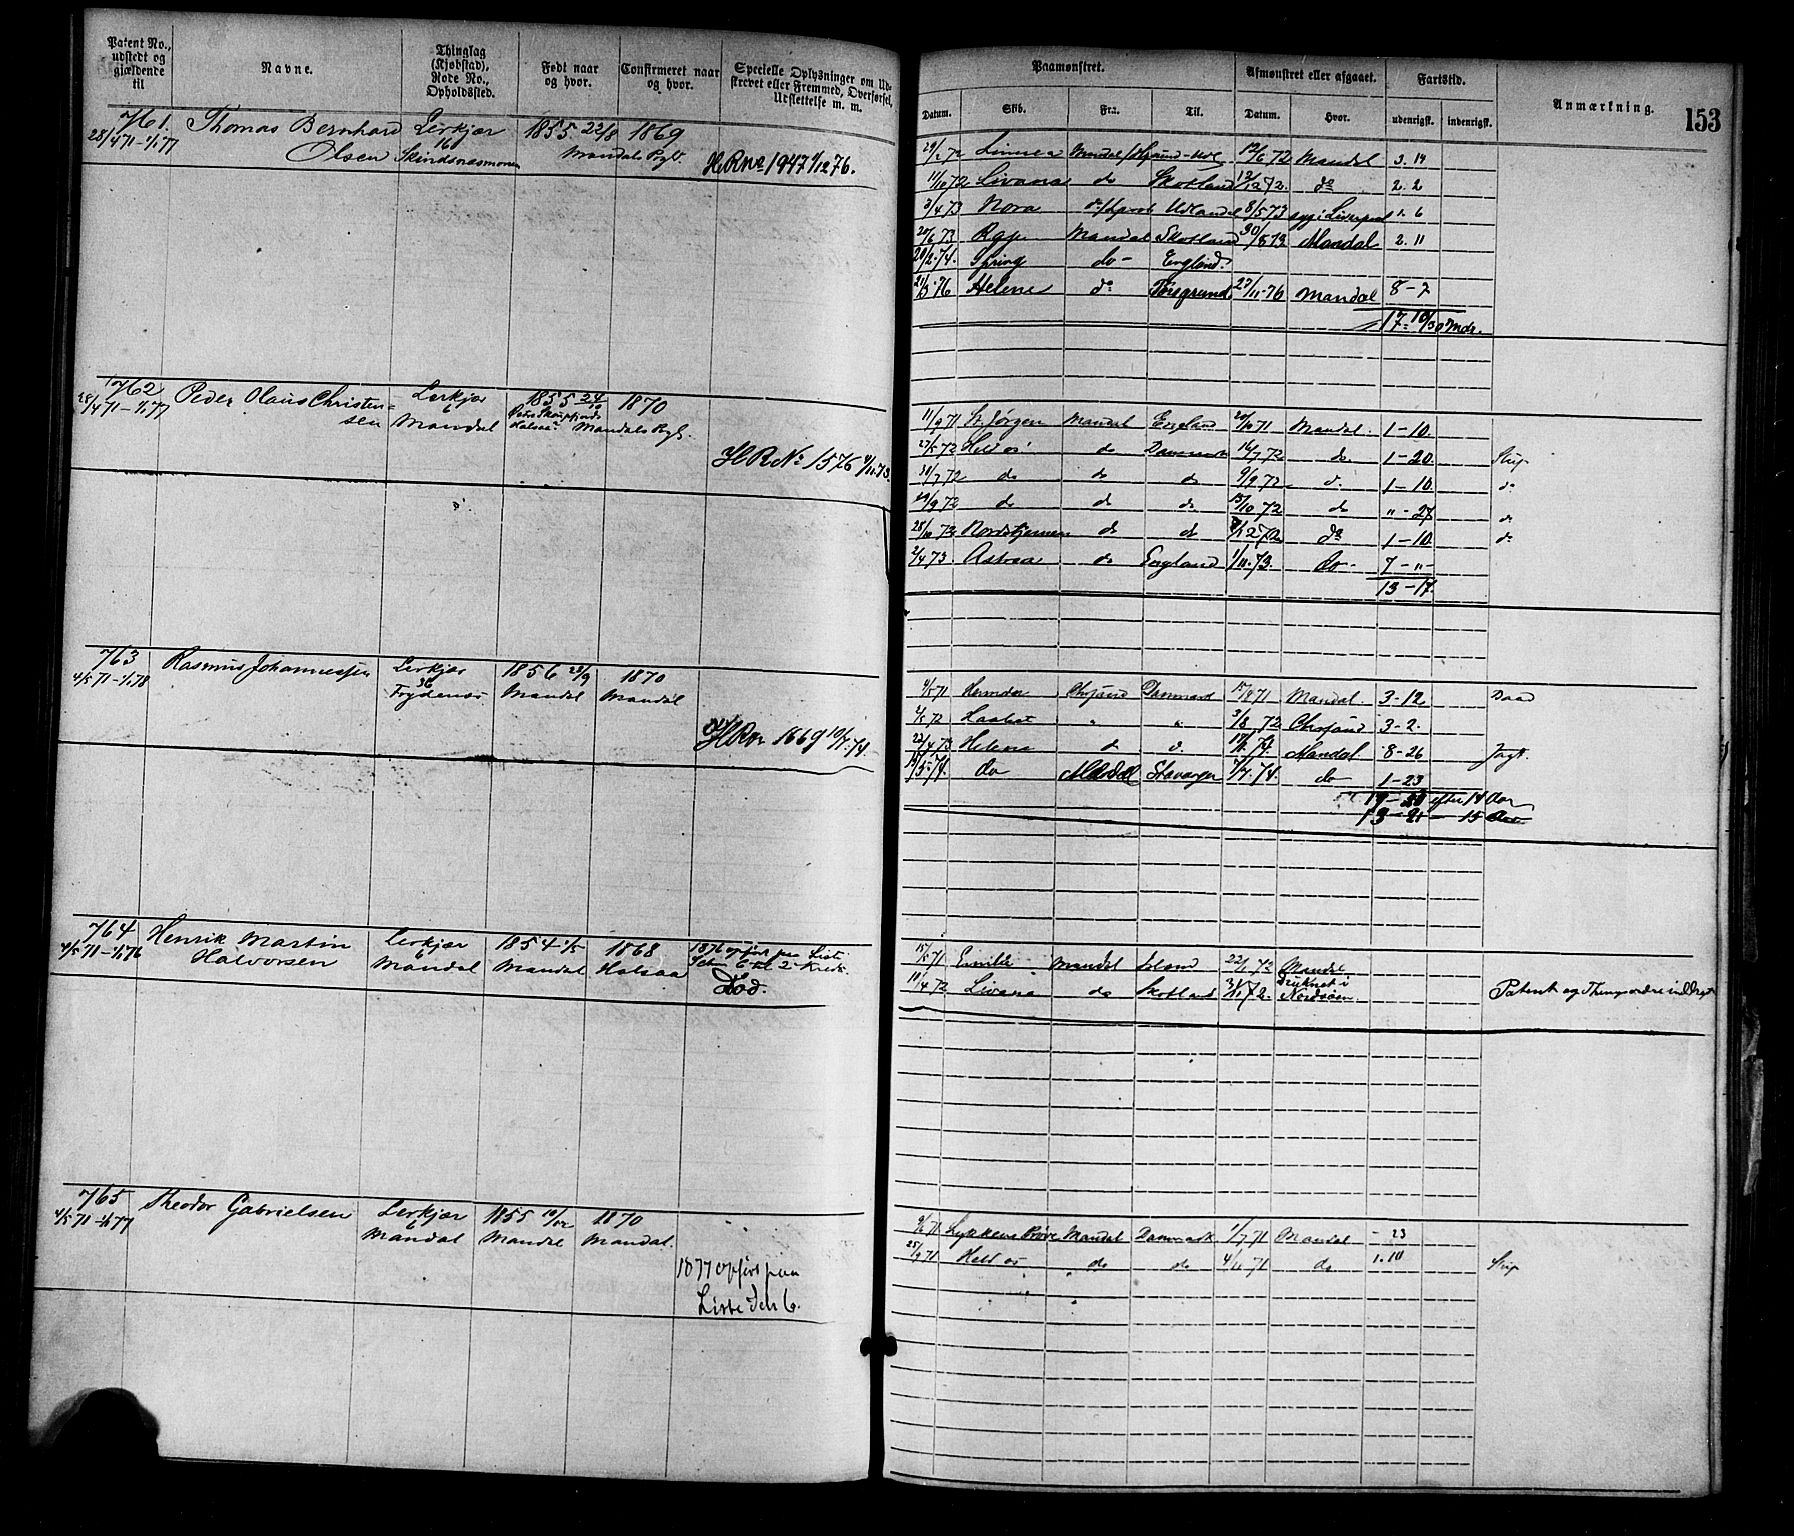 Patent No., udstedt og gjældende til
Navne.
Thinglag (Kjøbstad), Rode No., Opholdssted.
Født naar og hvor.
Confirmeret naar og hvor.
Specielle Oplysninger om Udskrevet eller Fremmed, Overførsel, Udslettelse m. m.
Paamønstret.
Afmønstret eller afgaaet.
Fartstid.
Anmærkning.
153
Datum.
Skib.
Fra.
Til.
Datum.
Hvor.
udenrigsk.
indenrigsk.
761. Thomas Bernhard Lerkjær 1855 22/8 1869
28/4 71 - 1/1 77 Olsen 16 Mandals Pgld.
HRNo 1947 1/12 76.
Linnea 12/6 72 Mandal 3. 19
11/10 72 Livana do Skotland 12/12 72. do 2. 2
3/4 73 Nora Udlandet 8/5 73 syg i Liverpool 1. 6
20/6 73 Mandal Skotland 30/8 73 Mandal 2. 11
Spring do England.
21/3 76 Helene do Porsgrund 27/11 76 Mandal 8 - 2
17 - 10/30 Mdr.
762 Peder Olaus Christensen Lerkjær 1855 24/10 1870
28/4 71 - 1/1 77 6 Mandal Halsaa Mandals Pgld.
HRNo. 1576 4/11 73.
11/9 71 St. Jørgen Mandal England 20/10 71 Mandal. 1 - 10.
27/5 72 Held os do Danmark 14/7 72 do 1 - 20. Slup
30/7 72 do do do 9/9 72 do 1 - 10. do
19/9 72 do do do 15/10 72 do " - 27 do
28/10 72 Nordstjernen do do 7/12 72 do 1 - 10. do
2/4 73 Astrea do England 1/11 73. do 7 - " -
13 - 17.
763 Rasmus Johannessen Lerkjær 1856 28/9 1870
4/5 71 - 1/1 78 36 Frydenæs Mandal Mandal
HRNo 1669 10/7 74.
4/5 71 Chrsand Danmark 15/9 71 Mandal. 3 - 12
2/5 72 " " 3/8 72 Chrsand 3 - 2.
22/4 73 Helene do do 17/1 74. Mandal 8 - 26 Jagt.
do Mandal Stavanger 7/7 74. do 1 - 23
19 - 20 efter 14 Aar
13 - 21 - 15 Aar
764 Henrik Martin Lerkjær 1854 1/5 1868
4/5 71 - 1/1 76 Halvorsen 6 Mandal Mandal Halsaa
1876 opført paa Liste
Død.
15/5 71 Emilie Mandal Island 22/1 72 Mandal
11/4 72 Livana do Skotland 3/11 72. Druknet i Nordsøen. Patent og
765 Theodor Gabrielsen Lerkjær 1855 10/12 1870
4/5 71 - 1/1 77 6 Mandal Mandal Mandal.
1877 opført paa
Liste Ich 6.
9/6 71 Lykkens Prøve Mandal Danmark 1/7 71 Mandal - 23
25/9 71 Held os do do 4/11 71 do 1. 10 Slup